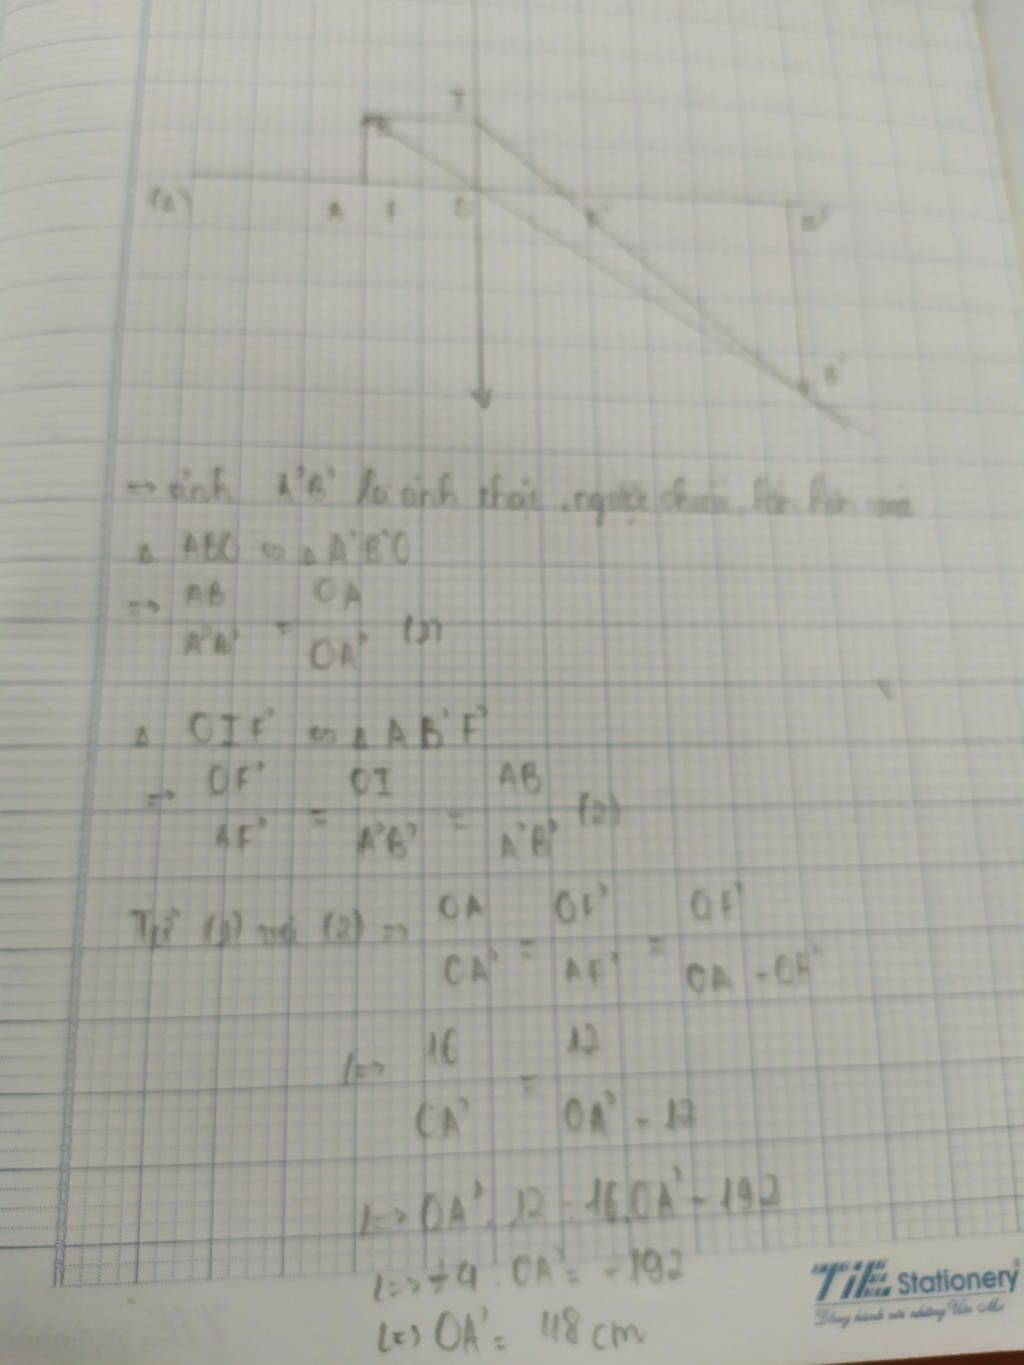 I
B
(Δ) A F O F' A'
B'
=> ảnh A'B' là ảnh thật, ngược chiều
Δ ABO ∽ Δ A'B'O
=> AB / A'B' = OA / OA' (1)
Δ OIF' ∽ Δ A B'F'
=> OF' / AF' = OI / A'B' = AB / A'B' (2)
Từ (1) và (2) => OA / OA' = OF' / AF' = OF' / OA - OF'
<=> 16 / OA' = 12 / OA' - 12
<=> OA'. 12 = 16.OA' - 192
<=> -4 . OA' = -192
<=> OA' = 48 cm
TiE Stationery
Đồng hành với những Ước Mơ